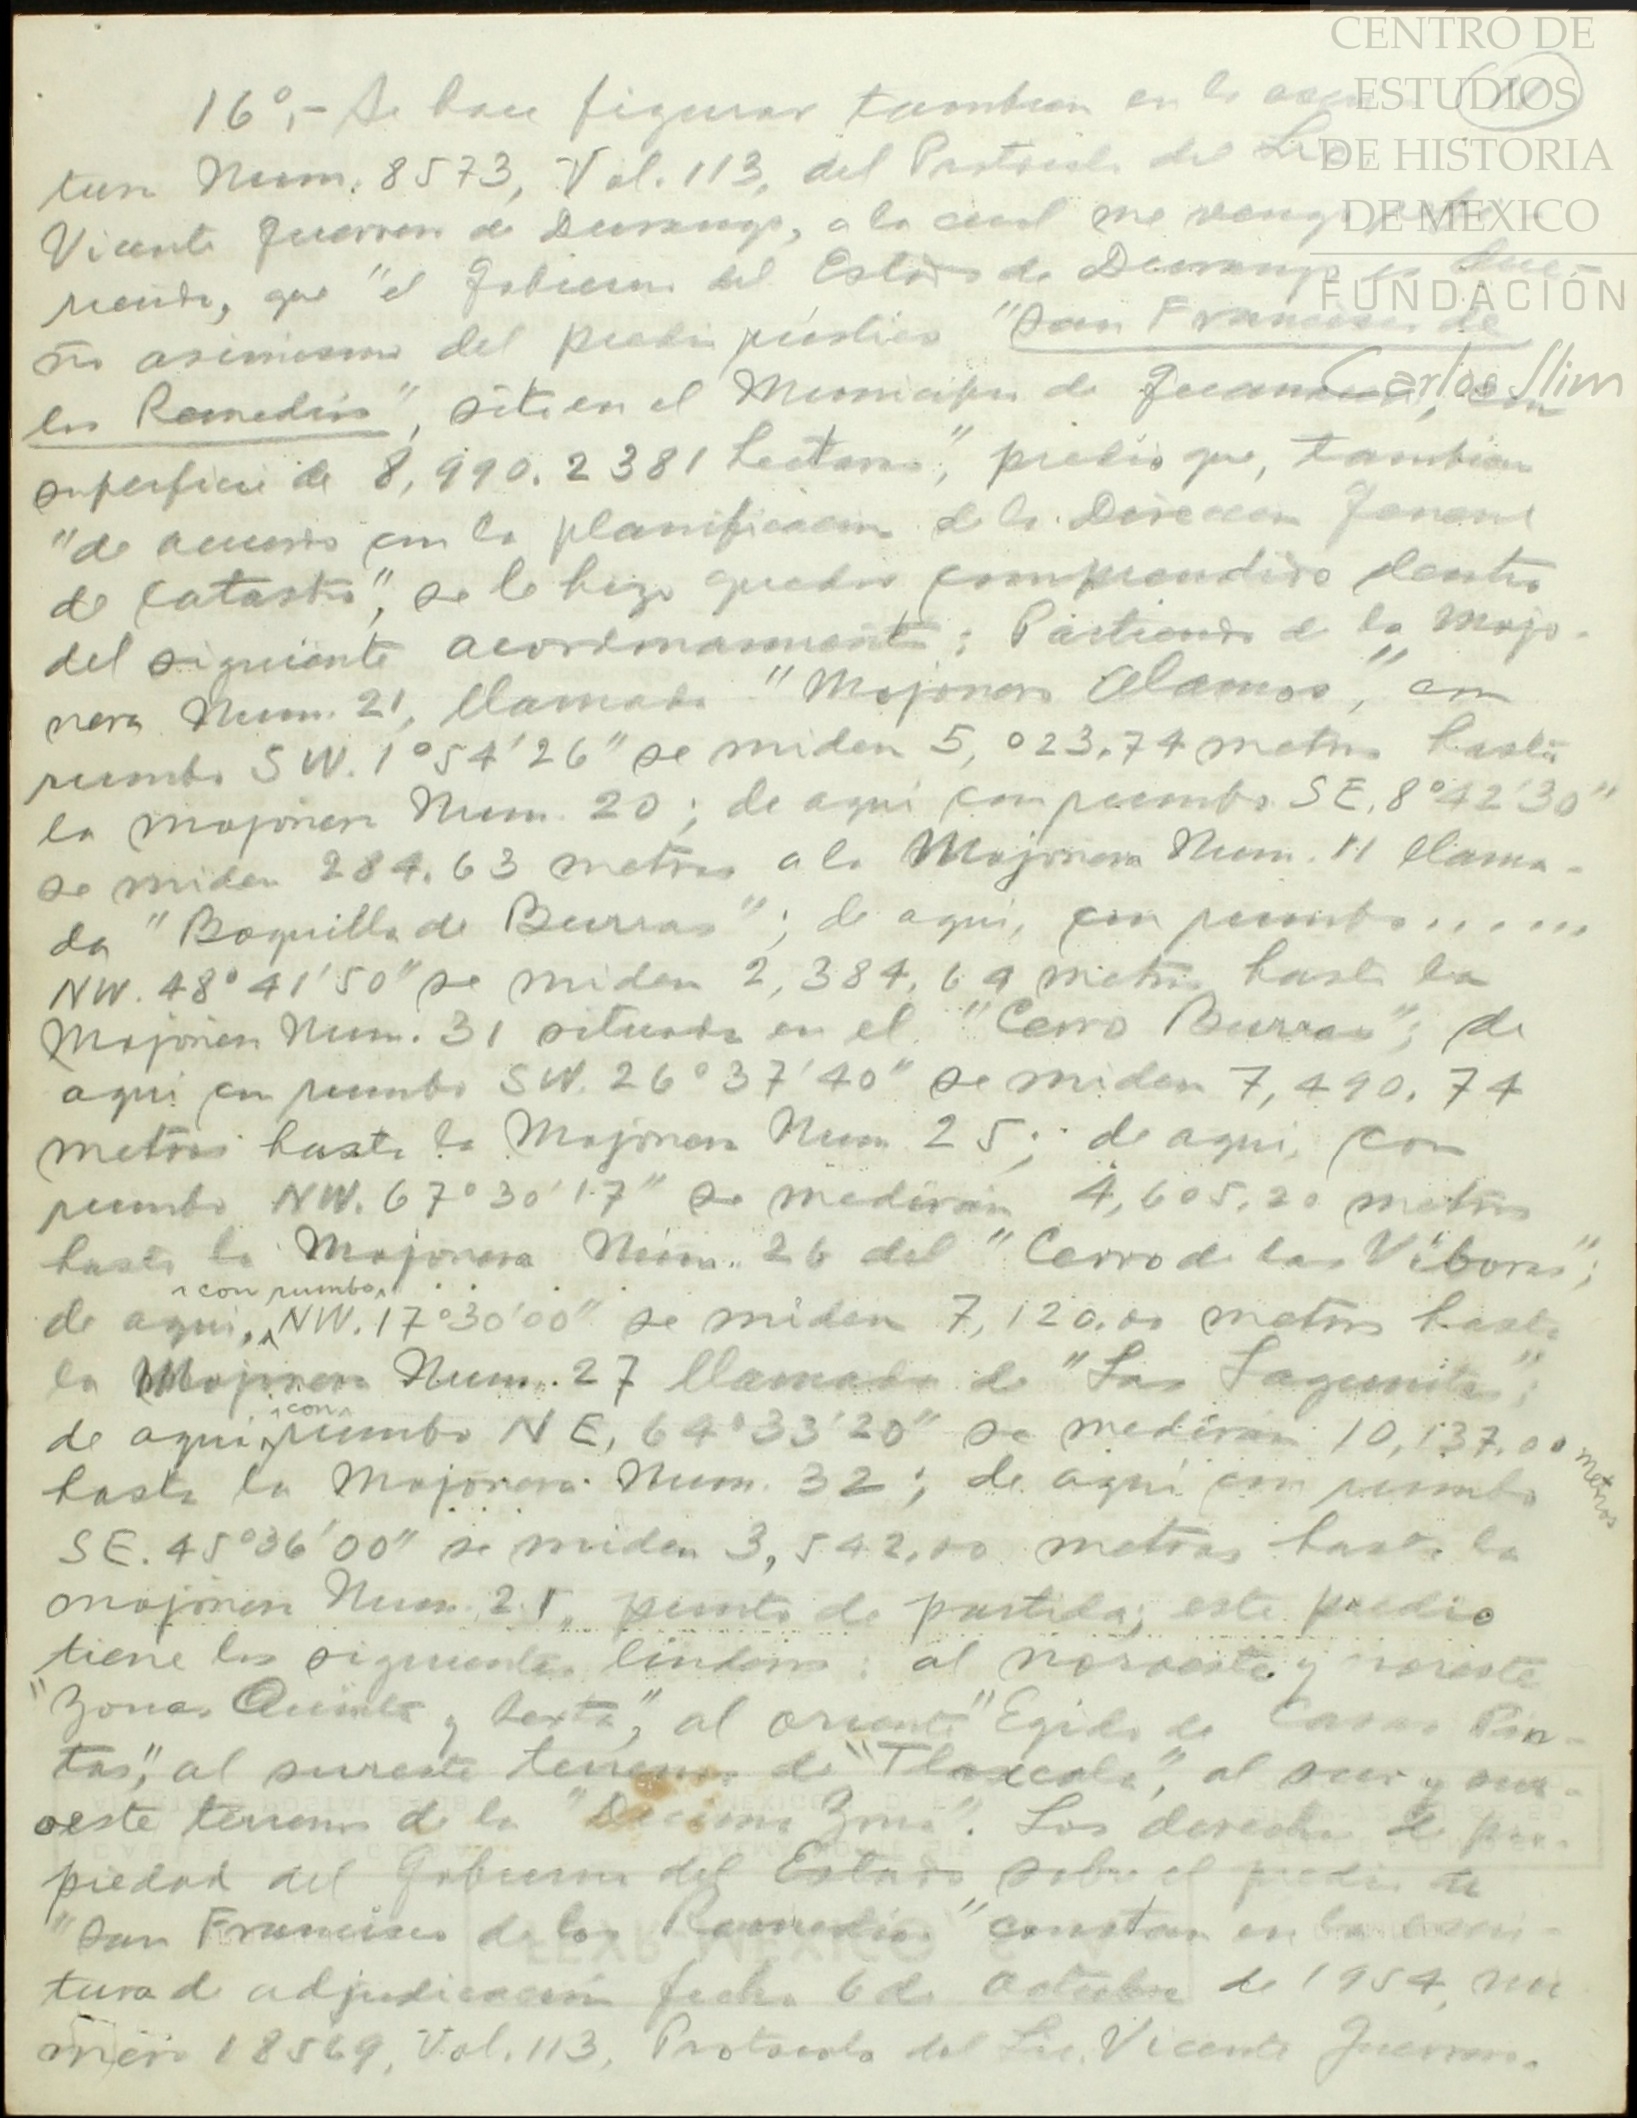 CENTRO DE
ESTUDIOS
DE HISTORIA
DE MEXICO
FUNDACIÓN
Carlos Slim
16º,- Se hace figurar tambien en la escri-
tura Num. 8573, Vol. 113, del Protocolo del Lic.
Vicente Guerrero de Durango, a la cual me vengo refi-
riendo, que "el Gobierno del Estado de Durango es due-
ño asimismo del predio rústico "San Francisco de
los Remedios", sito en el Municipio de Guanaceví, con
superficie de 8,990.2381 hectaras", predio que, tambien
"de acuerdo con la planificacion de la Direccion General
de Catastro", se le hizo quedar comprendido dentro
del siguiente acordonamiento: Partiendo de la Mojo-
nera Num. 21, llamada "Mojonera Alamos", con
rumbo SW. 1º54'26" se miden 5,023.74 metros hasta
la mojonera Num. 20; de aquí con rumbo SE. 8º42'30"
se miden 284.63 metros a la Mojonera Num. 11 llama-
da "Boquilla de Burras"; de aqui, con rumbo......
NW. 48º41'50" se miden 2,384.64 metros hasta la
Mojonera Num. 31 situada en el "Cerro Burras"; de
aqui con rumbo SW. 26º37'40" se miden 7,490.74
metros hasta la Mojonera Num 25; de aqui, con
rumbo NW. 67º30'17" se medirán 4,605.20 metros
hasta la Mojonera Núm. 26 del "Cerro de las Víboras";
de aqui, con rumbo NW. 17º30'00" se miden 7,120.00 metros hasta
la Mojonera Num. 27 llamada de "Las Lagunitas";
de aqui con rumbo NE, 64º33'20" se medirán 10,137.00 metros
hasta la Mojonera Num. 32; de aquí con rumbo
SE. 45º36'00" se miden 3,542.00 metros hasta la
mojonera Num. 21, punto de partida; este predio
tiene los siguientes linderos: al noroeste y noreste
"Zonas Quinta y Sexta", al oriente "Egido de Casas Pin-
tas", al sureste terrenos de "Tlaxcala", al sur y sur-
oeste terrenos de la "Decima Zona". Los derechos de pro-
piedad del Gobierno del Estado sobre el predio de
"San Francisco de los Remedios" constan en la escri-
tura de adjudicación fecha 6 de Octubre de 1954, nú
mero 18569, Vol. 113, Protocolo del Lic. Vicente Guerrero.